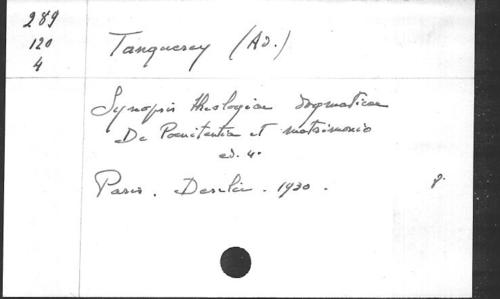 289
120
4
Tanquerey (Ad.)
Synopsis theologiae dogmaticae
De Poenitentia et matrimonio
ed. 4.
Paris. Desclée. 1930. 8.